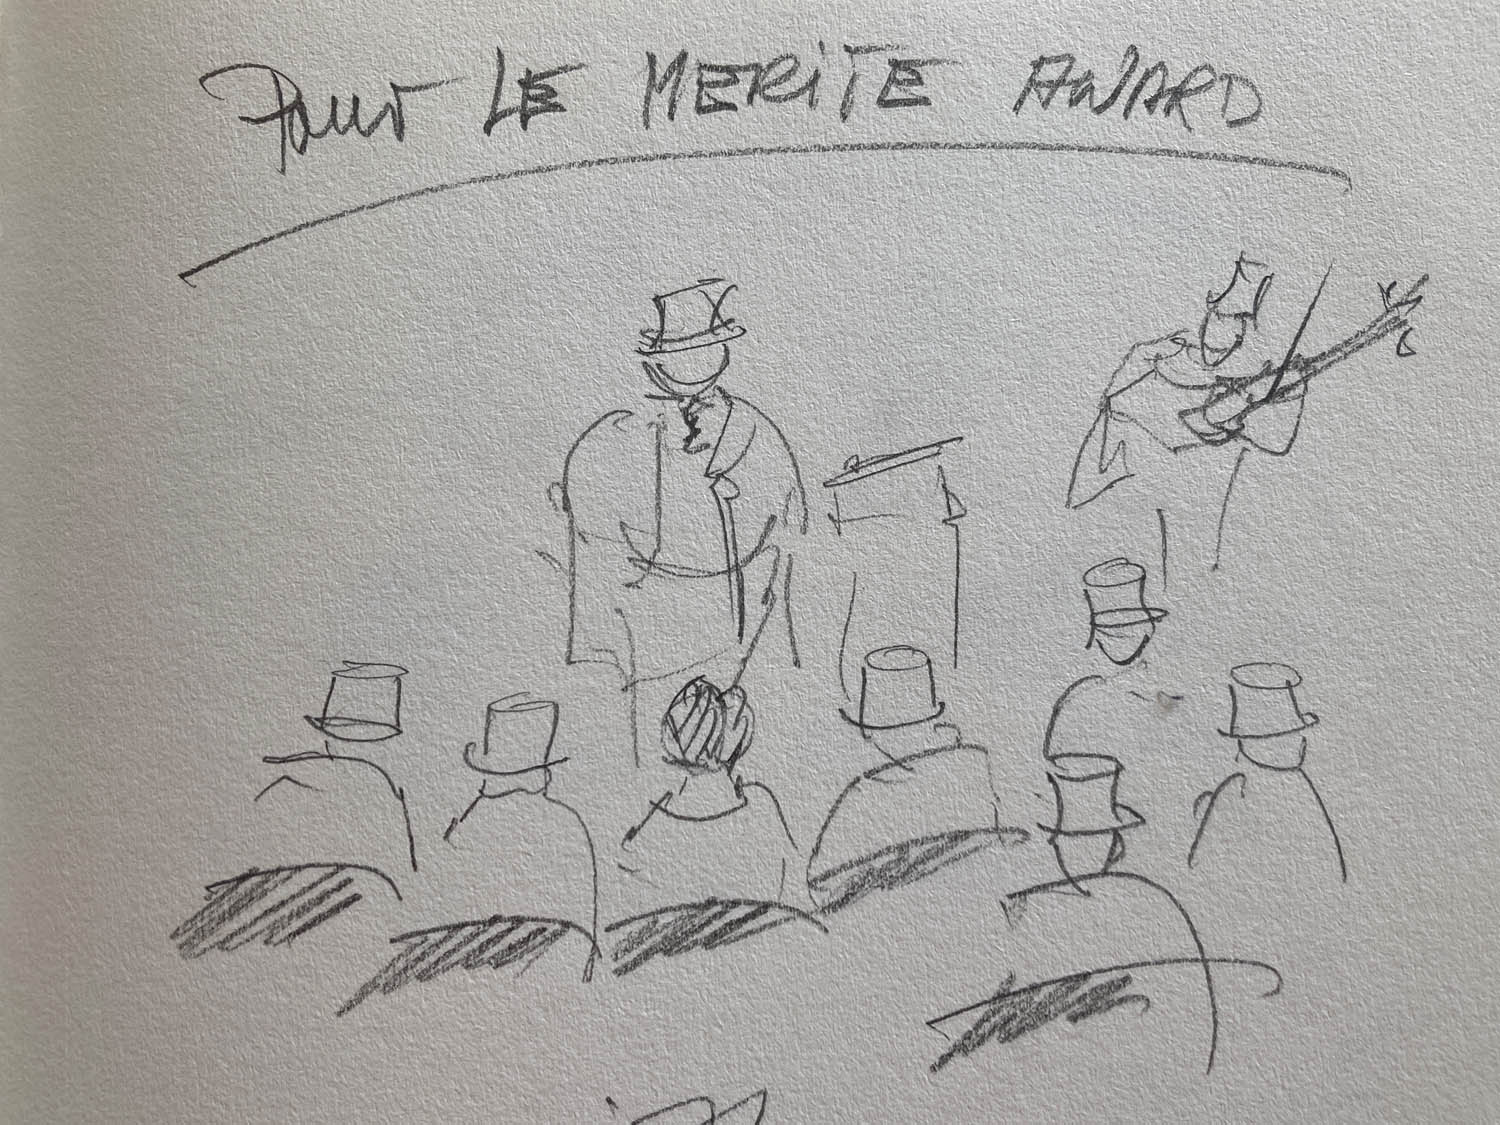 Pour LE MERiTE AWARD